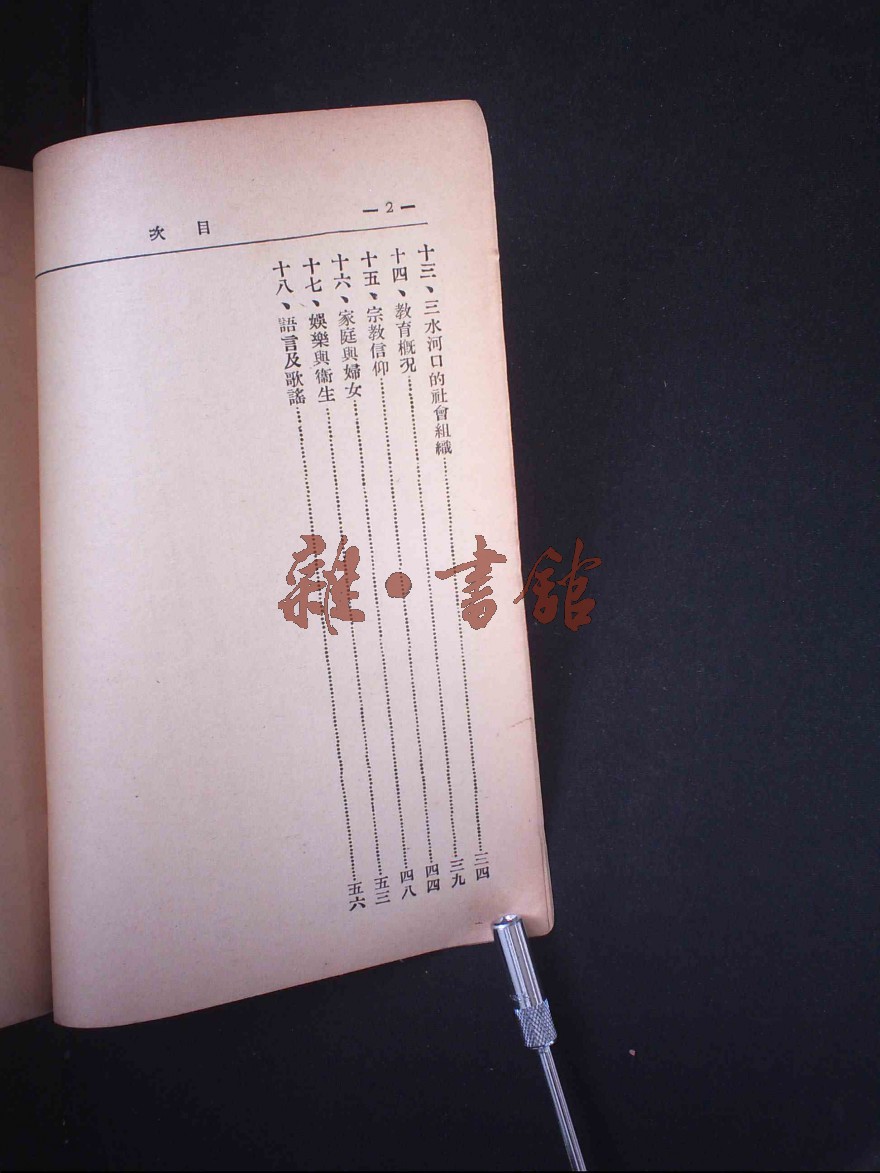 — 2 —
目次
十三、三水河口的社會組織……三四
十四、教育概况……三九
十五、宗教信仰……四四
十六、家庭與婦女……四八
十七、娛樂與衞生……五三
十八、語言及歌謠……五六
雜·書館